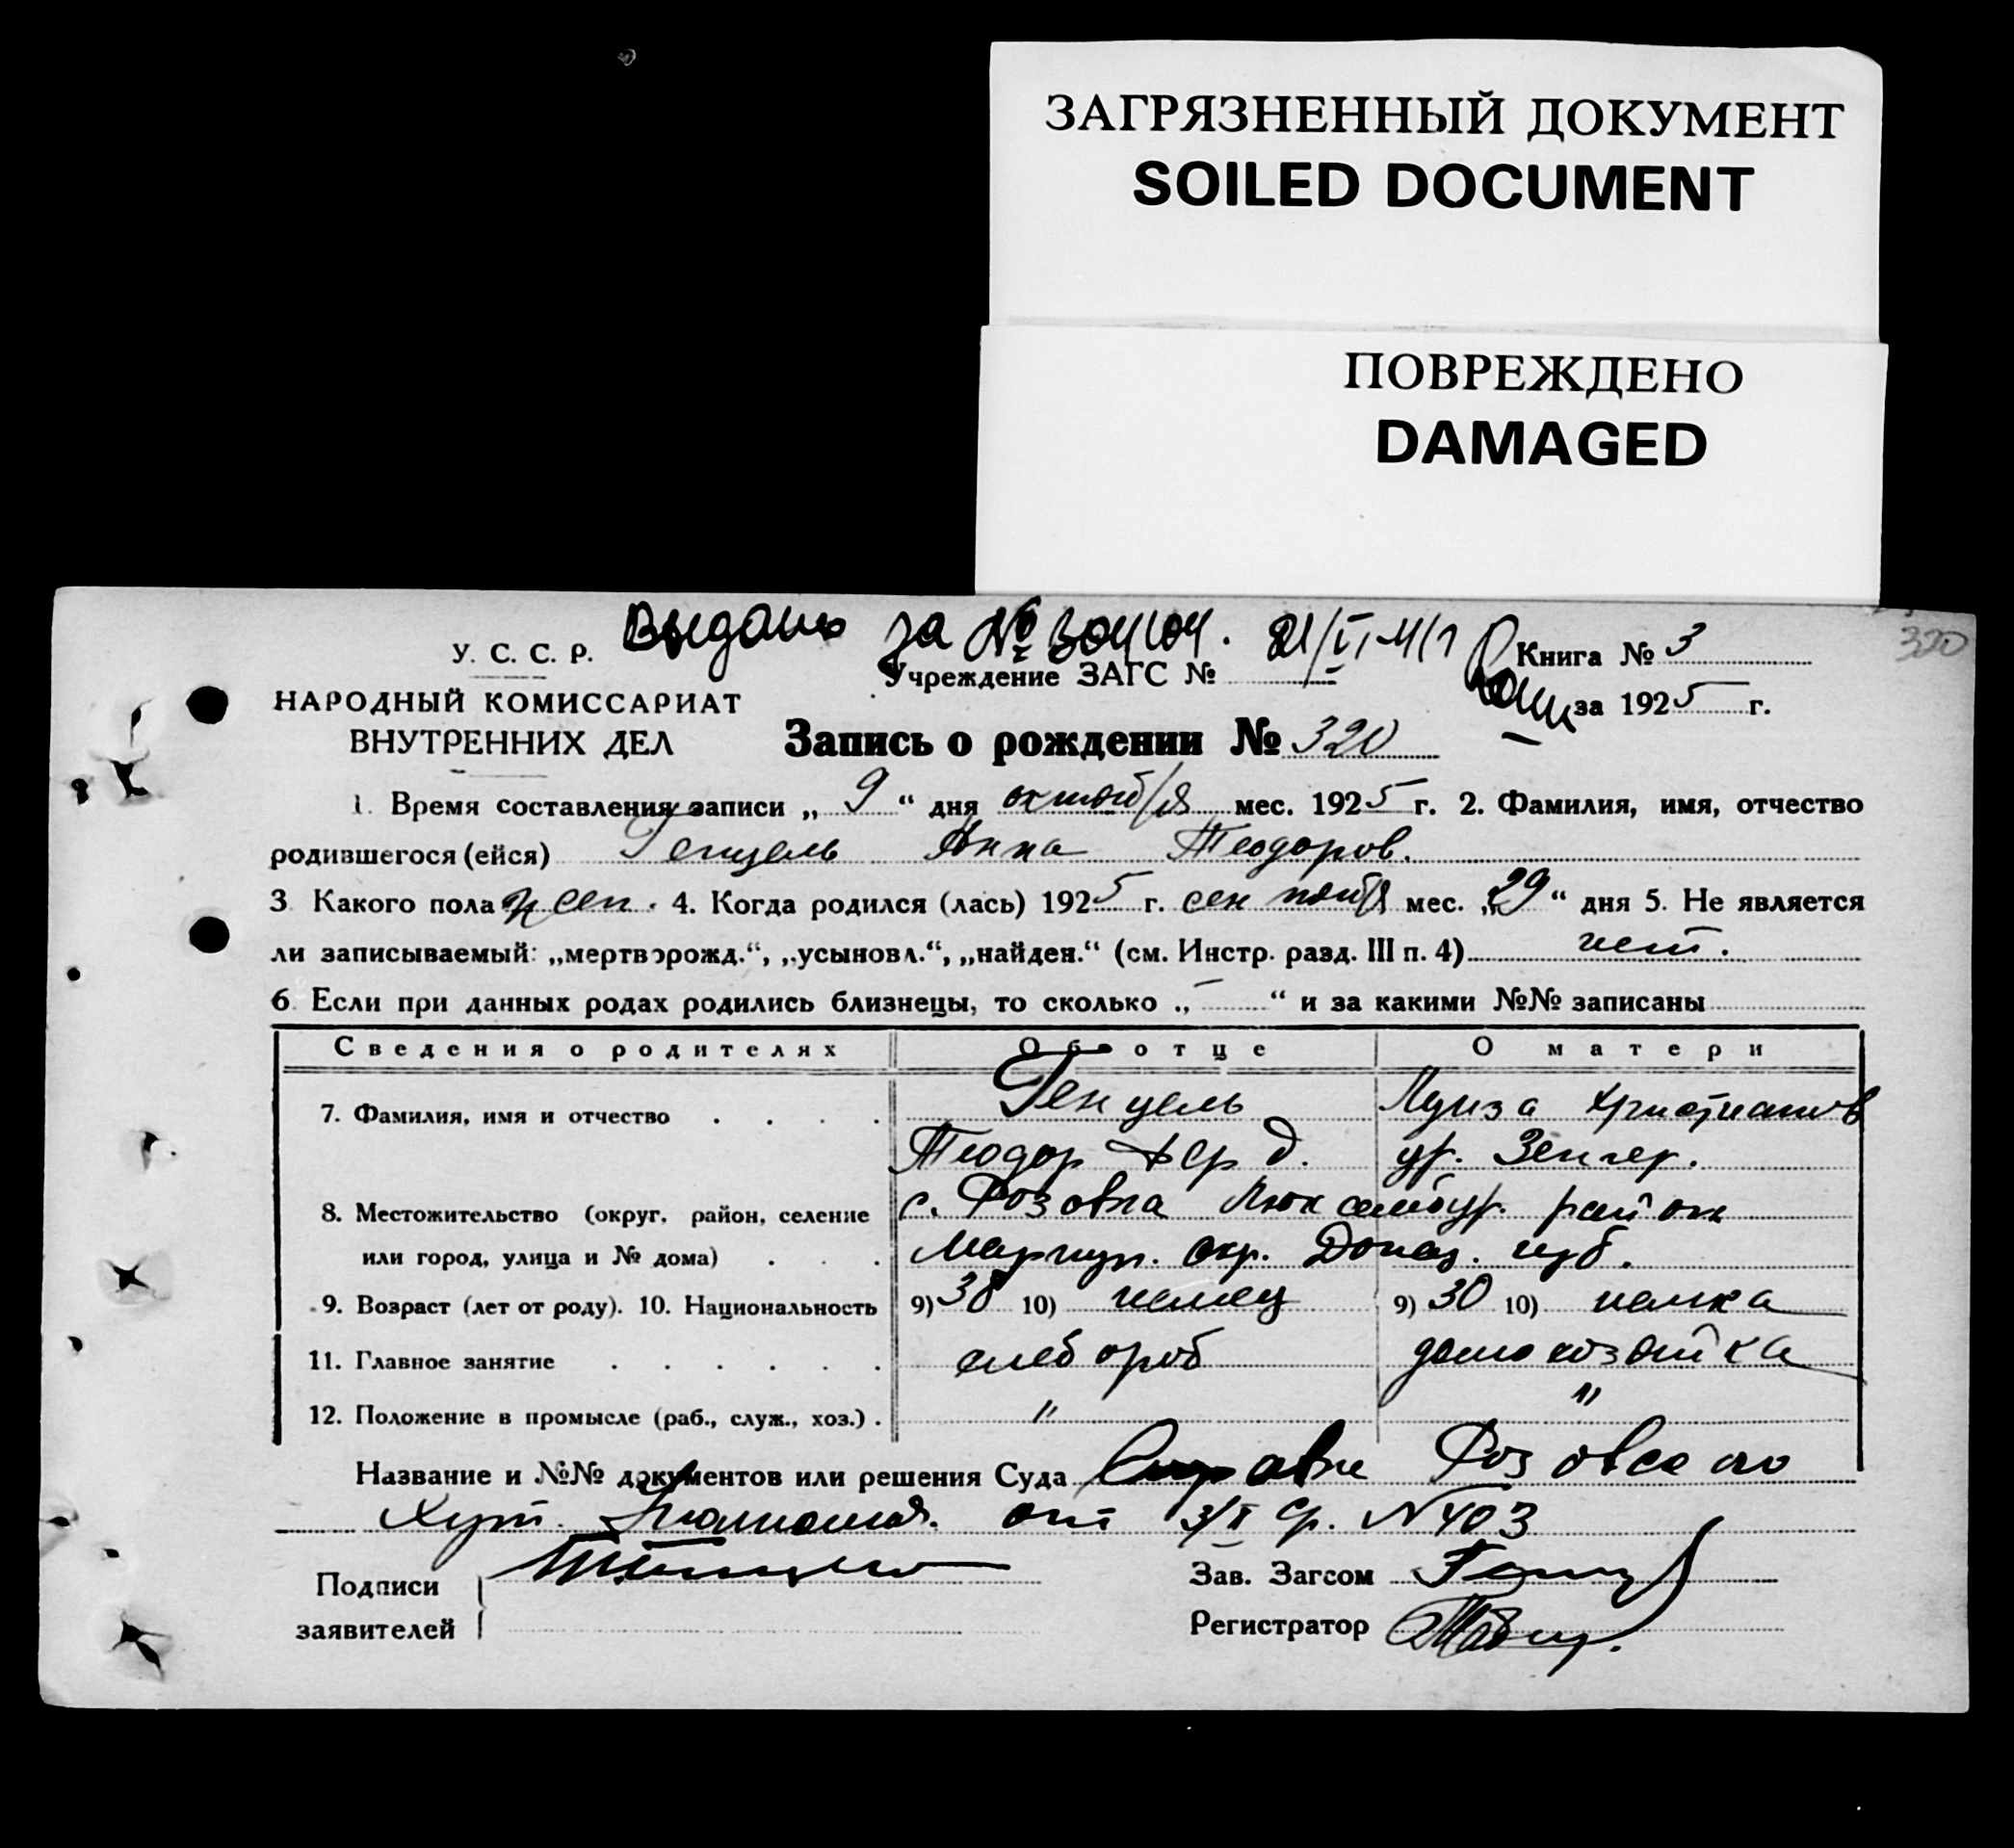 ЗАГРЯЗНЕННЫЙ ДОКУМЕНТ
SOILED DOCUMENT
ПОВРЕЖДЕНО
DAMAGED
320
Выдано за №
У. С. С. Р.
Учреждение ЗАГС №
Книга № 3
НАРОДНЫЙ КОМИССАРИАТ
ВНУТРЕННИХ ДЕЛ
за 1925 г.
Запись о рождении № 320
1. Время составления записи „ 9 “ дня октября мес. 1925 г. 2. Фамилия, имя, отчество
родившегося (ейся) Генцель Анна Теодоров.
3. Какого пола жен. 4. Когда родился (лась) 1925 г. сентября мес. „29“ дня 5. Не является
ли записываемый: „мертворожд.“, „усыновл.“, „найден.“ (см. Инстр. разд. III п. 4) нет.
6. Если при данных родах родились близнецы, то сколько „ — “ и за какими №№ записаны
Сведения о родителях Об отце О матери
7. Фамилия, имя и отчество . . . . Генцель Луиза Христианов
Теодор Ферд. ур. Зенгер.
8. Местожительство (округ, район, селение с. Розовка Люксембур. район
или город, улица и № дома) . . . Мариуп. окр. Донец. губ.
9. Возраст (лет от роду). 10. Национальность 9) 38 10) немец 9) 30 10) немка
11. Главное занятие . . . . . . хлебороб домохозяйка
12. Положение в промысле (раб., служ., хоз.) . " "
Название и №№ документов или решения Суда Справке Розовского
Хут. от 3/X с. N 403
Подписи
заявителей
Зав. Загсом
Регистратор